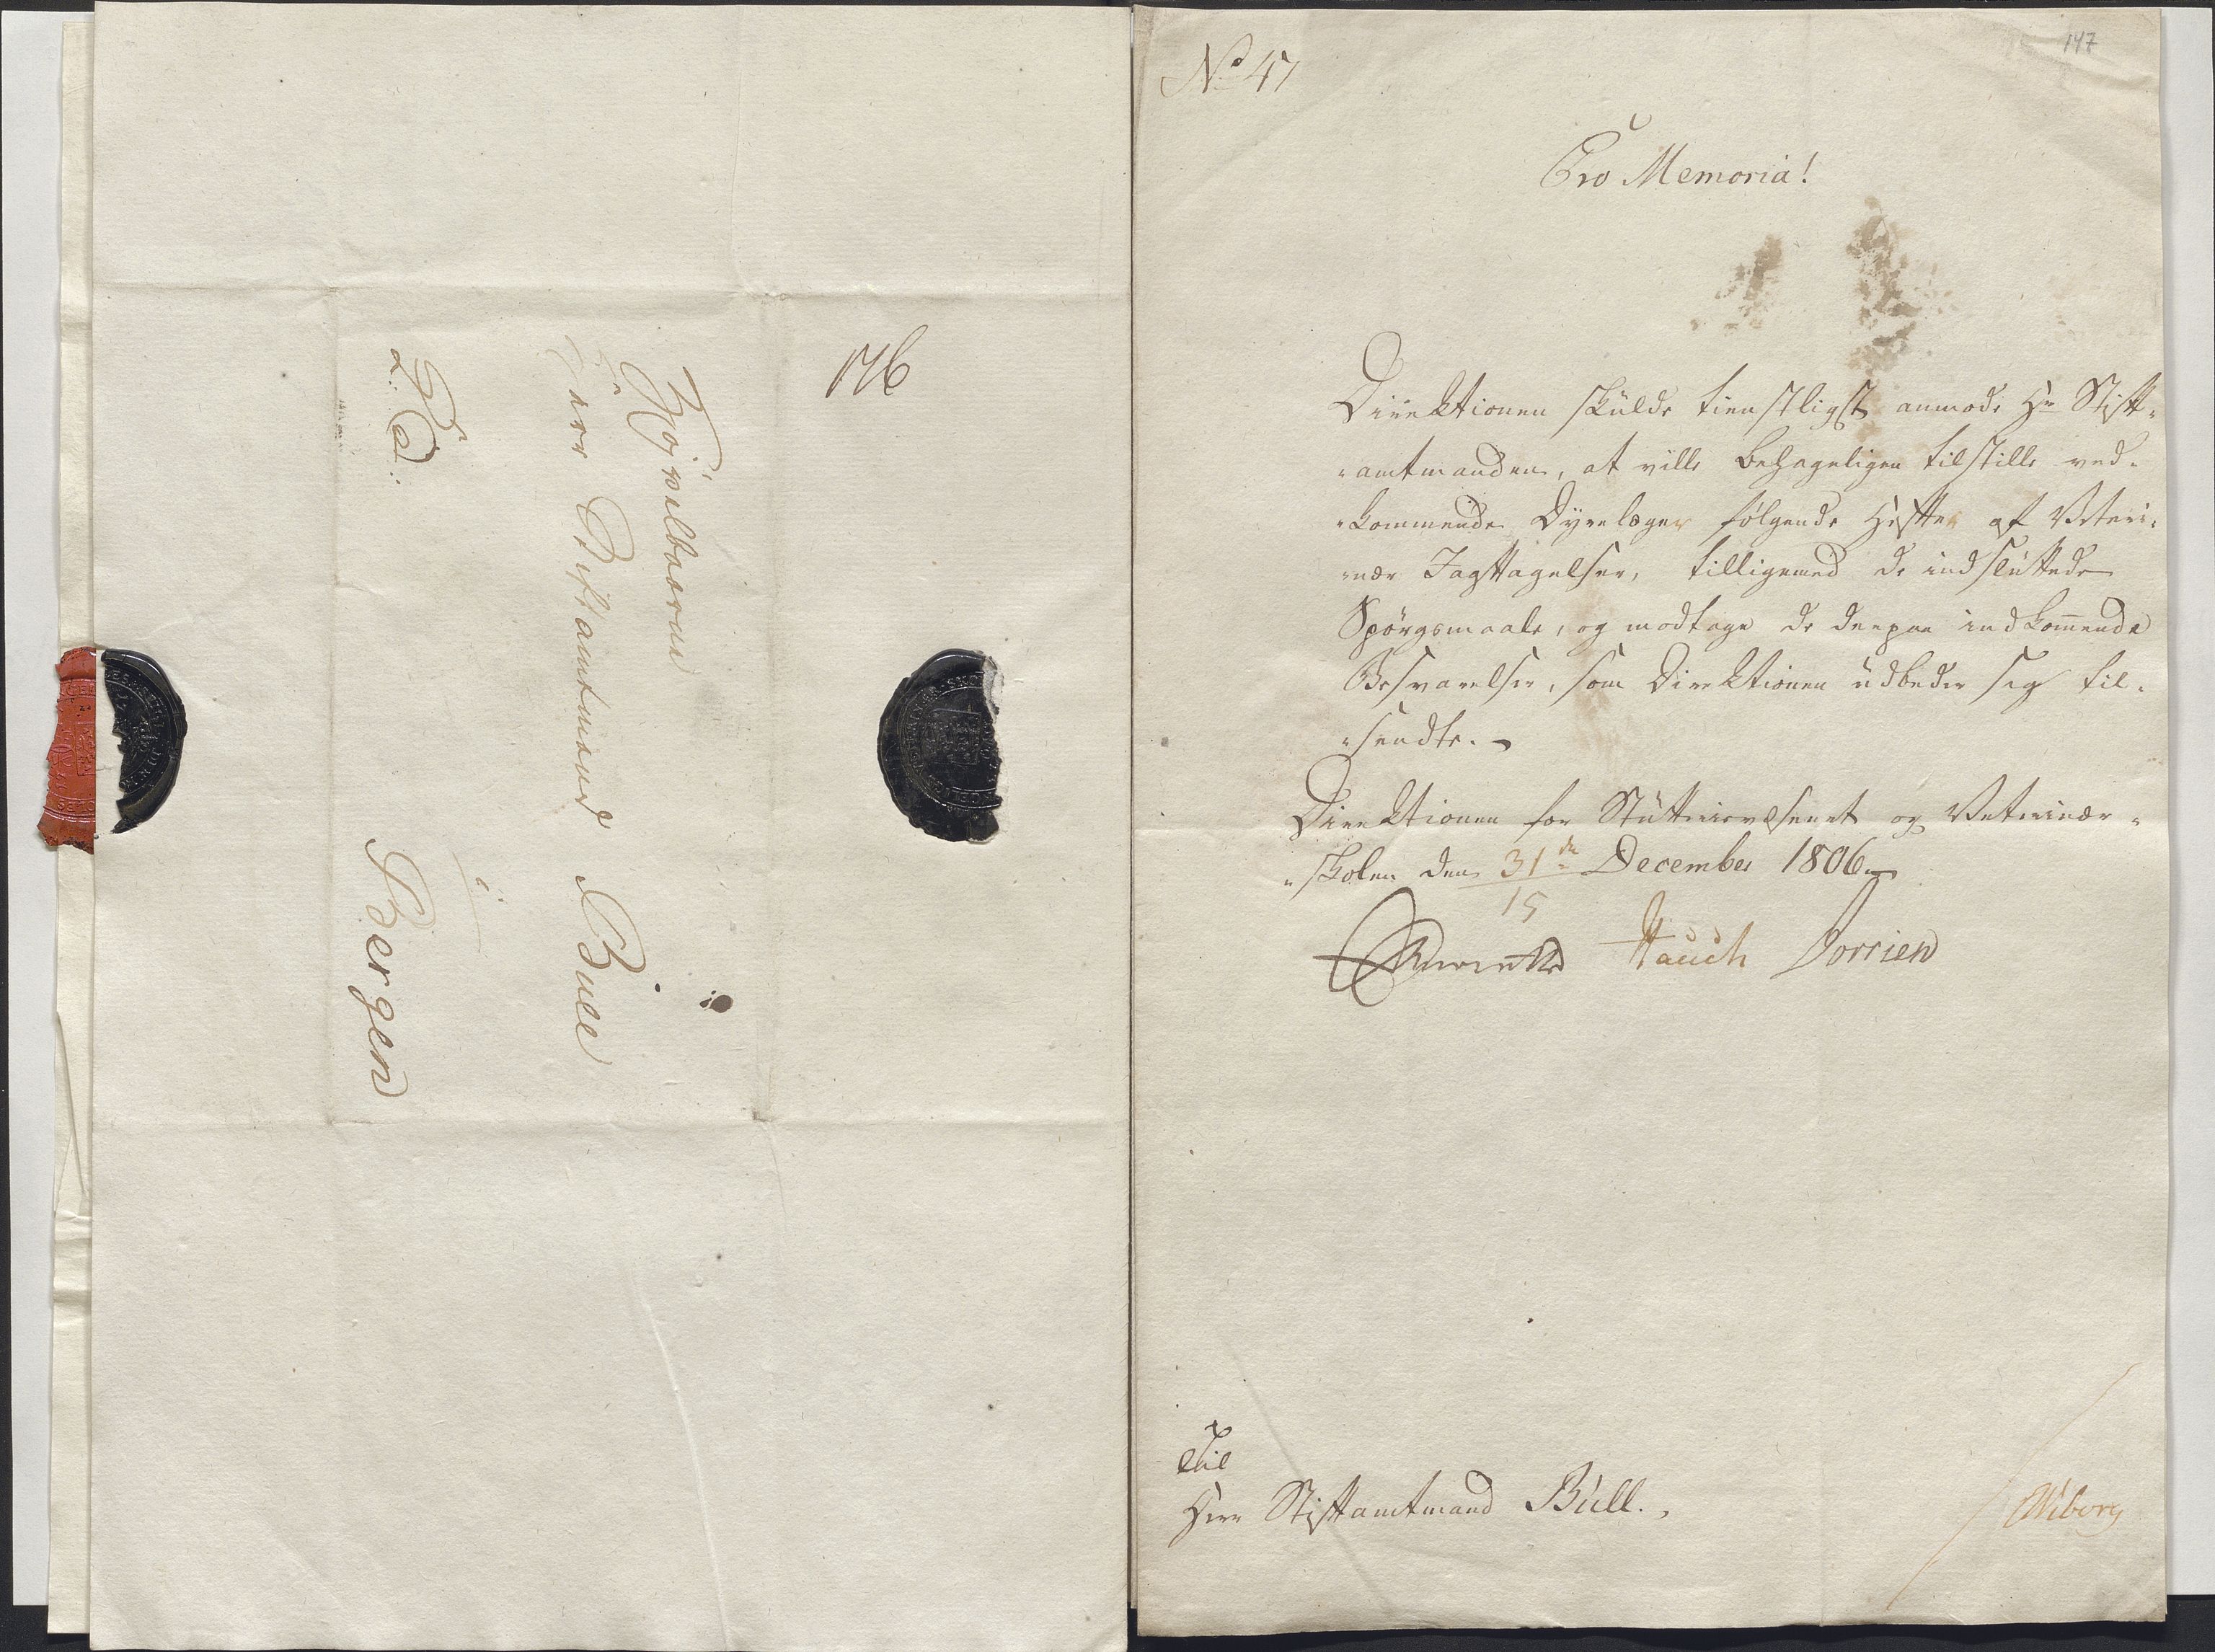 176
Høivelbaarne
Herr Stiftamtmand Bull
i
Bergen
No 47
147
Pro Memoria!
Direktionen skulde tienstligst anmode Hr Stift-
-amtmanden, at ville behageligen tilstille ved-
-kommende Dyrelæger følgende Hefter af Veteri-
-nær Jagttagelser, tilligemed de indsluttede
Spørgsmaale, og modtage de derpaa indkommende
Besvarelser, som Direktionen udbeder sig til-
-sendte.
Direktionen for Stutterievæsenet og Veterinær-
-skolen den 31te December 1806
15
Hauch Dorrien
Til
Herr Stiftamtmand Bull.
Viborg